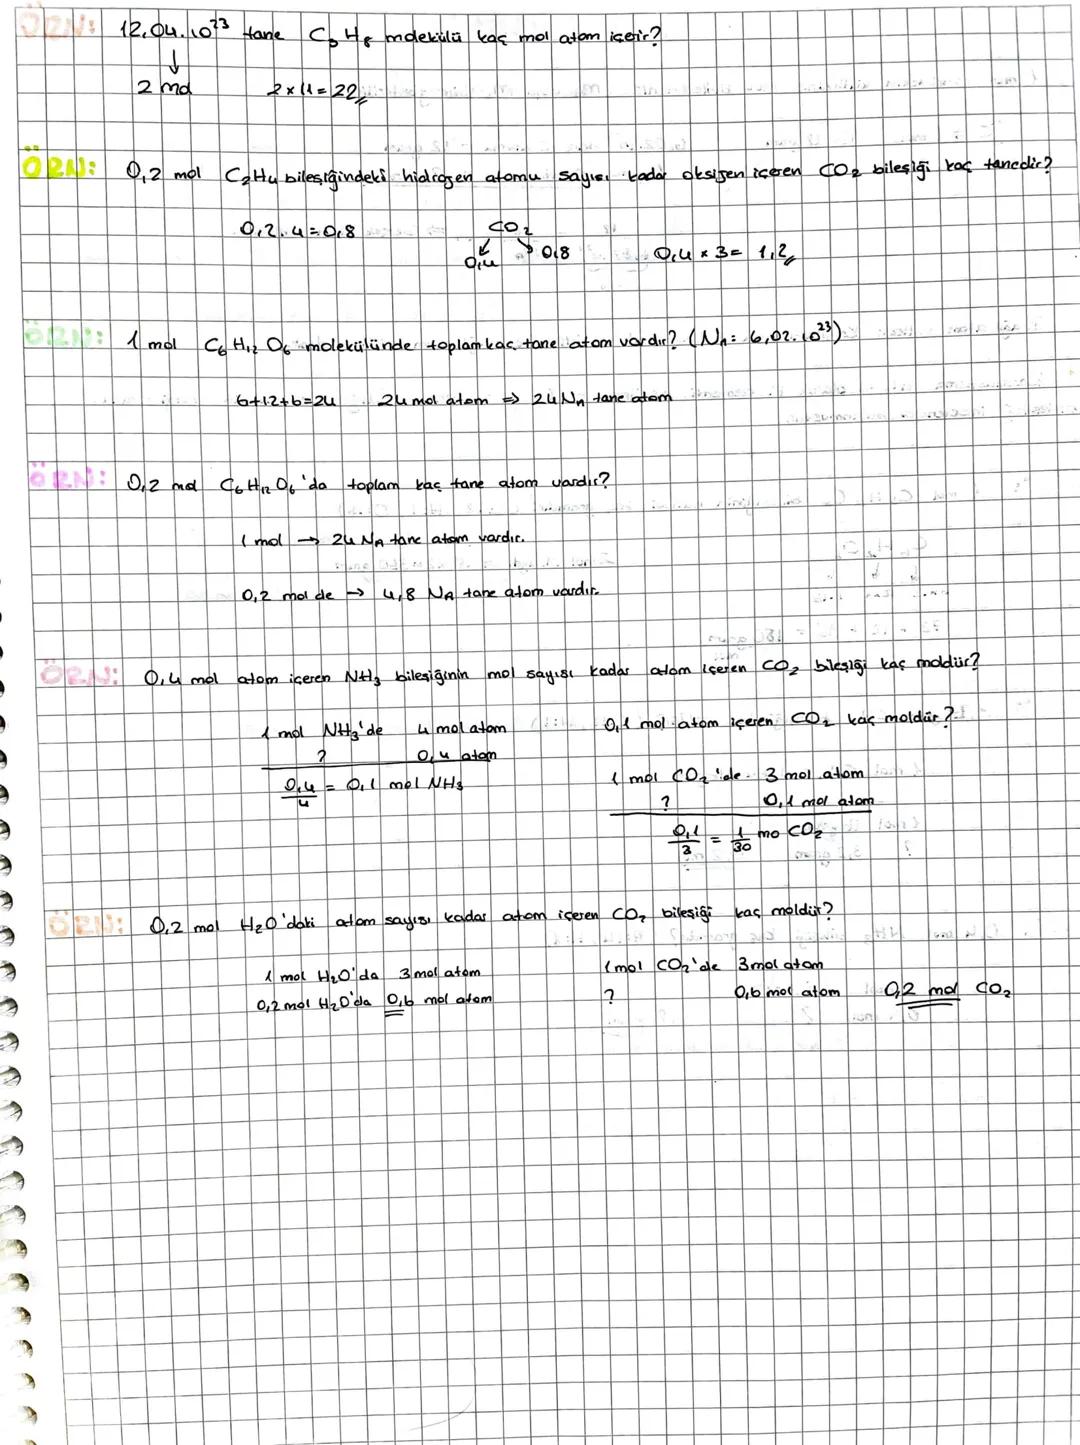 ÖRN: 12,04.10²³ tane C₃H₈ molekülü kaç mol atom içerir?
↓
2 mol 2x11=22
ÖRN: 0,2 mol C₂H₄ bileşiğindeki hidrojen atomu sayısı kadar oksijen içeren CO₂ bileşiği kaç tanedir?
0,2.4=0,8 CO₂
0,4 0,8 0,4 x 3= 1,2
ÖRN: 1 mol C₆H₁₂O₆ molekülünde toplam kaç tane atom vardır? (Nₐ: 6,02.10²³)
6+12+6=24 24 mol atom ⇒ 24Nₐ tane atom
ÖRN: 0,2 mol C₆H₁₂O₆'da toplam kaç tane atom vardır?
1 mol → 24 Nₐ tane atom vardır.
0,2 mol de → 4,8 Nₐ tane atom vardır.
ÖRN: 0,4 mol atom içeren NH₃ bileşiğinin mol sayısı kadar atom içeren CO₂ bileşiği kaç moldür?
1 mol NH₃'de 4 mol atom
? 0,4 atom
0,4/4 = 0,1 mol NH₃
0,1 mol atom içeren CO₂ kaç moldür?
1 mol CO₂'de 3 mol atom
? 0,1 mol atom
0,1/3 = 1/30 mo CO₂
ÖRN: 0,2 mol H₂O'daki atom sayısı kadar atom içeren CO₂ bileşiği kaç moldür?
1 mol H₂O'da 3 mol atom
0,2 mol H₂O'da 0,6 mol atom
1 mol CO₂'de 3 mol atom
? 0,6 mol atom 0,2 mol CO₂